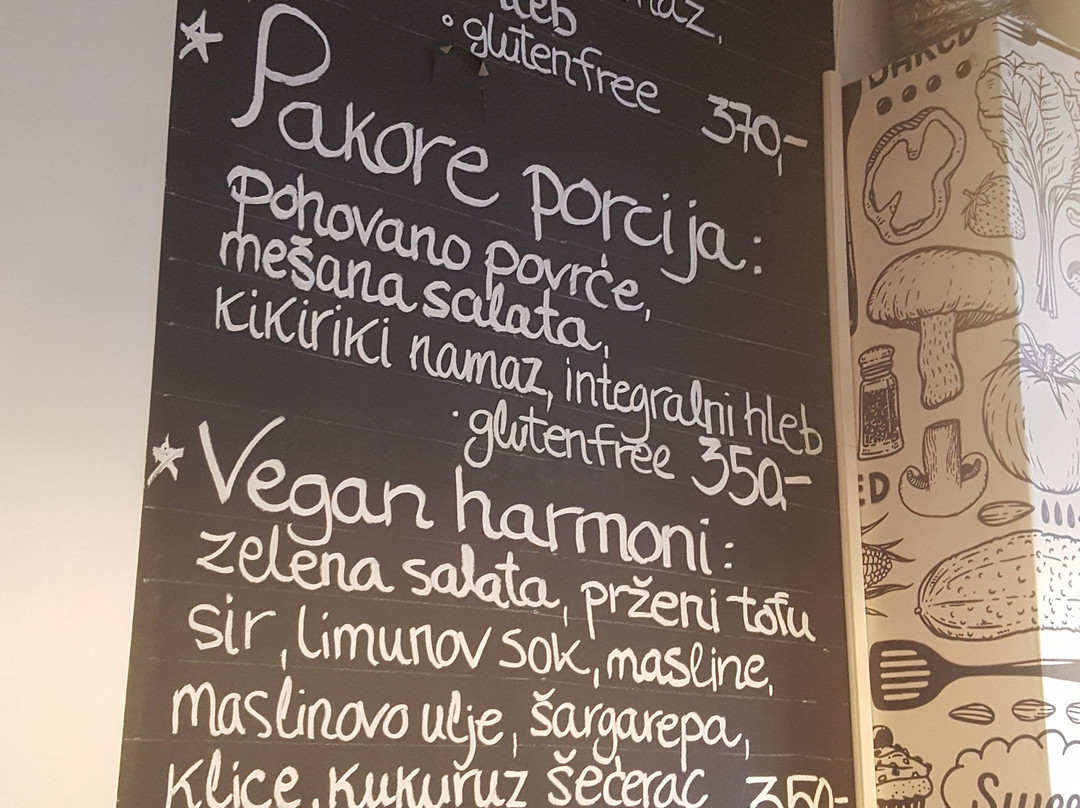 hleb
namaz,
• glutenfree 370,-
Pakore porcija:
pohovano povrće,
mešana salata,
kikiriki namaz, integralni hleb
• glutenfree 350,-
Vegan harmoni:
zelena salata, prženi tofu
sir, limunov sok, masline,
maslinovo ulje, šargarepa,
klice, kukuruz šećerac 350,-
BAKED
ED